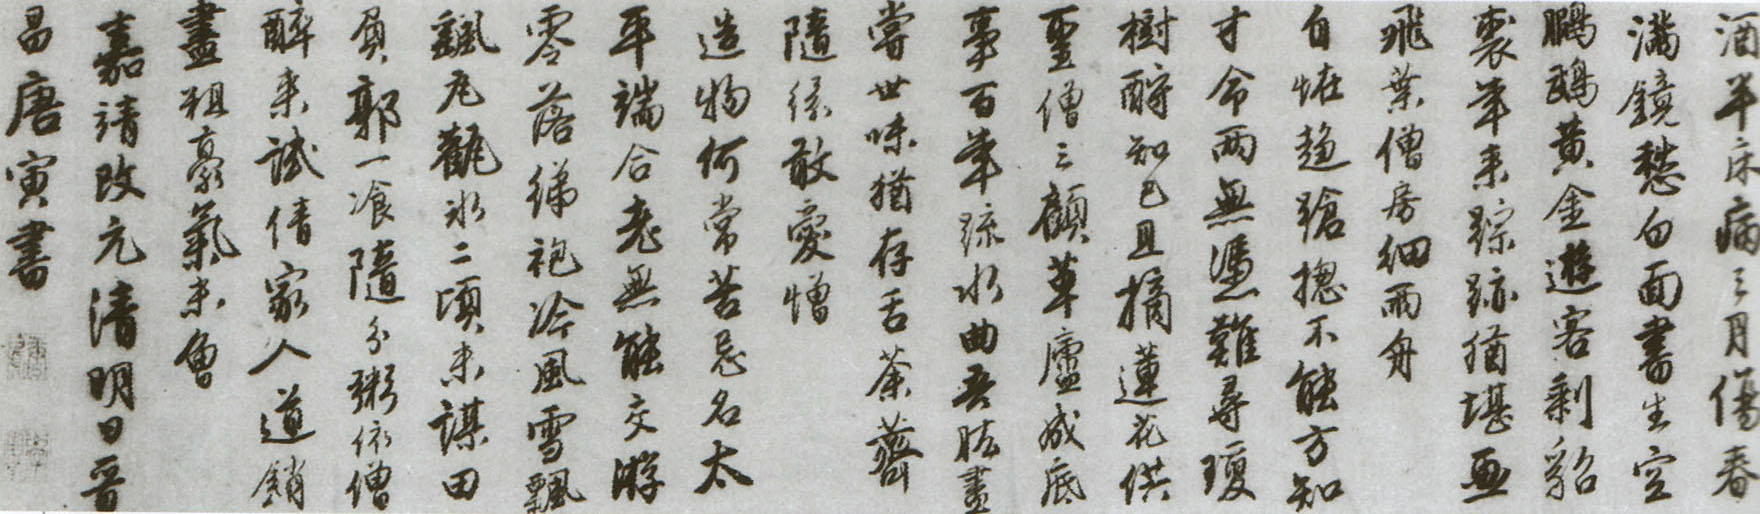 酒半床病三月傷春
滿鏡愁白面書生空
鵬鷃黃金遊客剩貂
裘年來踪跡猶堪畫
飛葉僧房細雨舟
自怪趨蹌揔不能方知
才命兩無憑難尋瓊
樹酧知己且摘蓮花供
聖僧三顧草廬成底
事百年疏水曲吾肱盡
嘗世味猶存舌荼薺
隨緣敢愛憎
造物何常苦忌名太
平端合老無能交游
零落綈袍冷風雪飄
飄瓦罐冰二頃未謀田
負郭一飡隨分粥依僧
醉來試倩家人道銷
盡粗豪氣未曾
嘉靖改元清明日晉
昌唐寅書